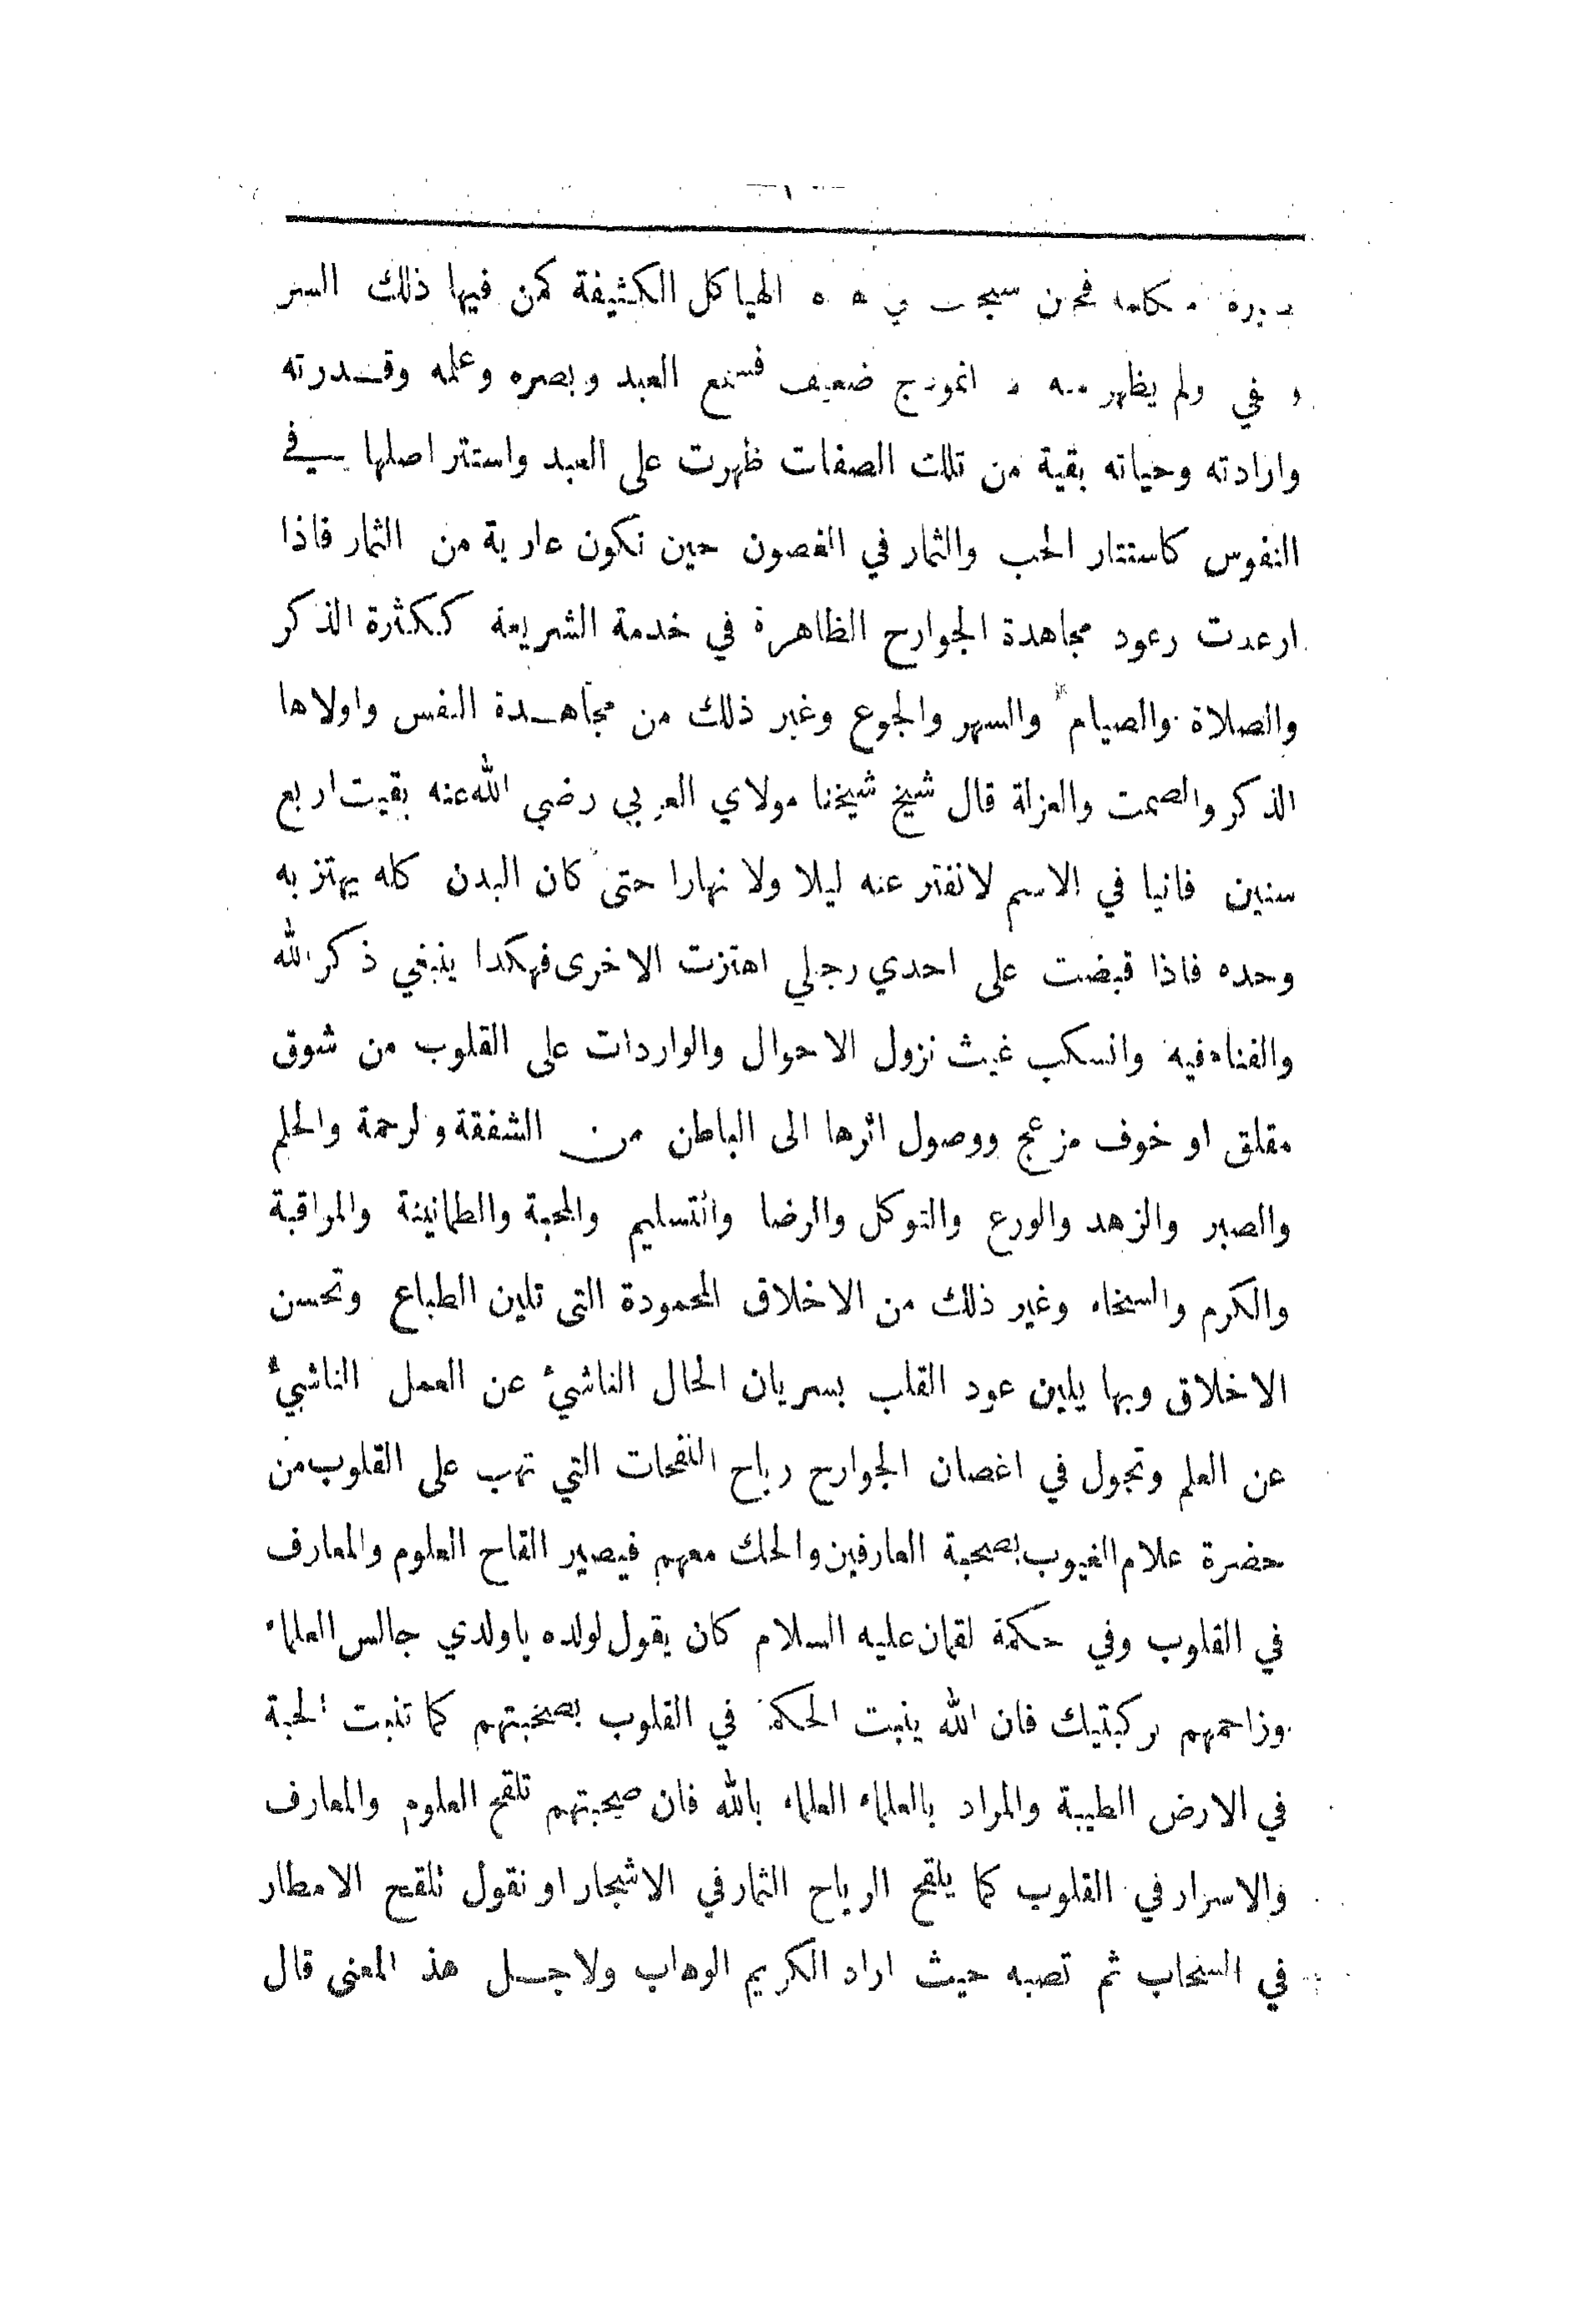 الهياكل الكثيفة كمن فيها ذلك السر
ولم يظهر انموذج ضعيف فسمع العبد وبصره وعلمه وقــدرته
وارادته وحياته بقية من تلك الصفات ظهرت على العبد واستتر اصلها في
النفوس كاستتار الحب والثمار في الغصون حين تكون عارية من الثمار فاذا
ارعدت رعود مجاهدة الجوارح الظاهرة في خدمة الشريعة ككثرة الذكر
والصلاة والصيام والسهر والجوع وغير ذلك من مجاهــدة النفس واولاها
الذكر والصمت والعزلة قال شيخ شيخنا مولاي العربي رضي الله عنه بقيت اربع
سنين فانيا في الاسم لانفتر عنه ليلا ولا نهارا حتى كان البدن كله يهتز به
وحده فاذا قبضت على احدي رجلي اهتزت الاخرى فهكدا ينبغي ذكر الله
والفناء فيه وانسكب غيث نزول الاحوال والواردات على القلوب من شوق
مقلق او خوف مزعج ووصول اثرها الى الباطن من الشفقة ولرحمة والحلم
والصبر والزهد والورع والتوكل والرضا والتسليم والمحبة والطمانينة والمراقبة
والكرم والسخاء وغير ذلك من الاخلاق المحمودة التى تلين الطباع وتحسن
الاخلاق وبها يلين عود القلب بسريان الحال الناشيء عن العمل الناشيء
عن العلم وتجول في اغصان الجوارح رياح النفحات التي تهب على القلوب من
حضرة علام الغيوب بصحبة العارفين والحك معهم فيصير القاح العلوم والمعارف
في القلوب وفي حكمة لقمان عليه السلام كان يقول لولده ياولدي جالس العلماء
وزاحمهم بركبتيك فان الله ينبت الحكمة في القلوب بصحبتهم كما تنبت الحبة
في الارض الطيبة والمراد بالعلماء العلماء بالله فان صحبتهم تلقح العلوم والمعارف
والاسرار في القلوب كما يلقح الرياح الثمار في الاشجار او نقول تلقح الامطار
في السحاب ثم تصبه حيث اراد الكريم الوهاب ولاجــل هذ المعنى قال